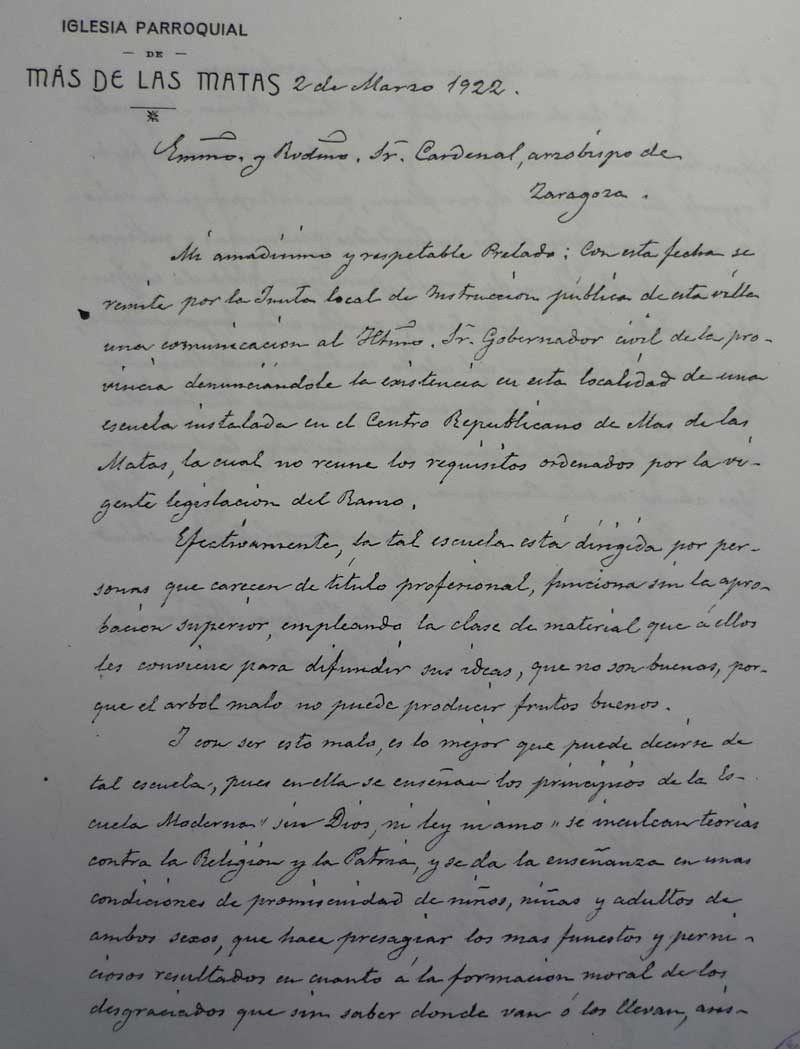 IGLESIA PARROQUIAL
— DE —
MÁS DE LAS MATAS 2 de Marzo 1922.
Emmo. y Rvdmo. Sr. Cardenal, arzobispo de
Zaragoza.
Mi amadísimo y respetable Prelado; Con esta fecha se
remite por la Junta local de Instrucción pública de esta villa
una comunicación al Iltmo. Sr. Gobernador civil de la pro-
vincia denunciándole la existencia en esta localidad de una
escuela instalada en el Centro Republicano de Mas de las
Matas, la cual no reune los requisitos ordenados por la vi-
gente legislación del Ramo.
Efectivamente, la tal escuela está dirigida por per-
sonas que carecen de título profesional, funciona sin la apro-
bación superior, empleando la clase de material que á ellos
les conviene para difundir sus ideas, que no son buenas, por-
que el arbol malo no puede producir frutos buenos.
I con ser esto malo, es lo mejor que puede decirse de
tal escuela, pues en ella se enseñan los principios de la Es-
cuela Moderna "sin Dios, ni ley ni amo" se inculcan teorías
contra la Religión y la Patria, y se da la enseñanza en unas
condiciones de promiscuidad de niños, niñas y adultos de
ambos sexos, que hace presagiar los mas funestos y perni-
ciosos resultados en cuanto á la formación moral de los
desgraciados que sin saber donde van ó los llevan, asis-